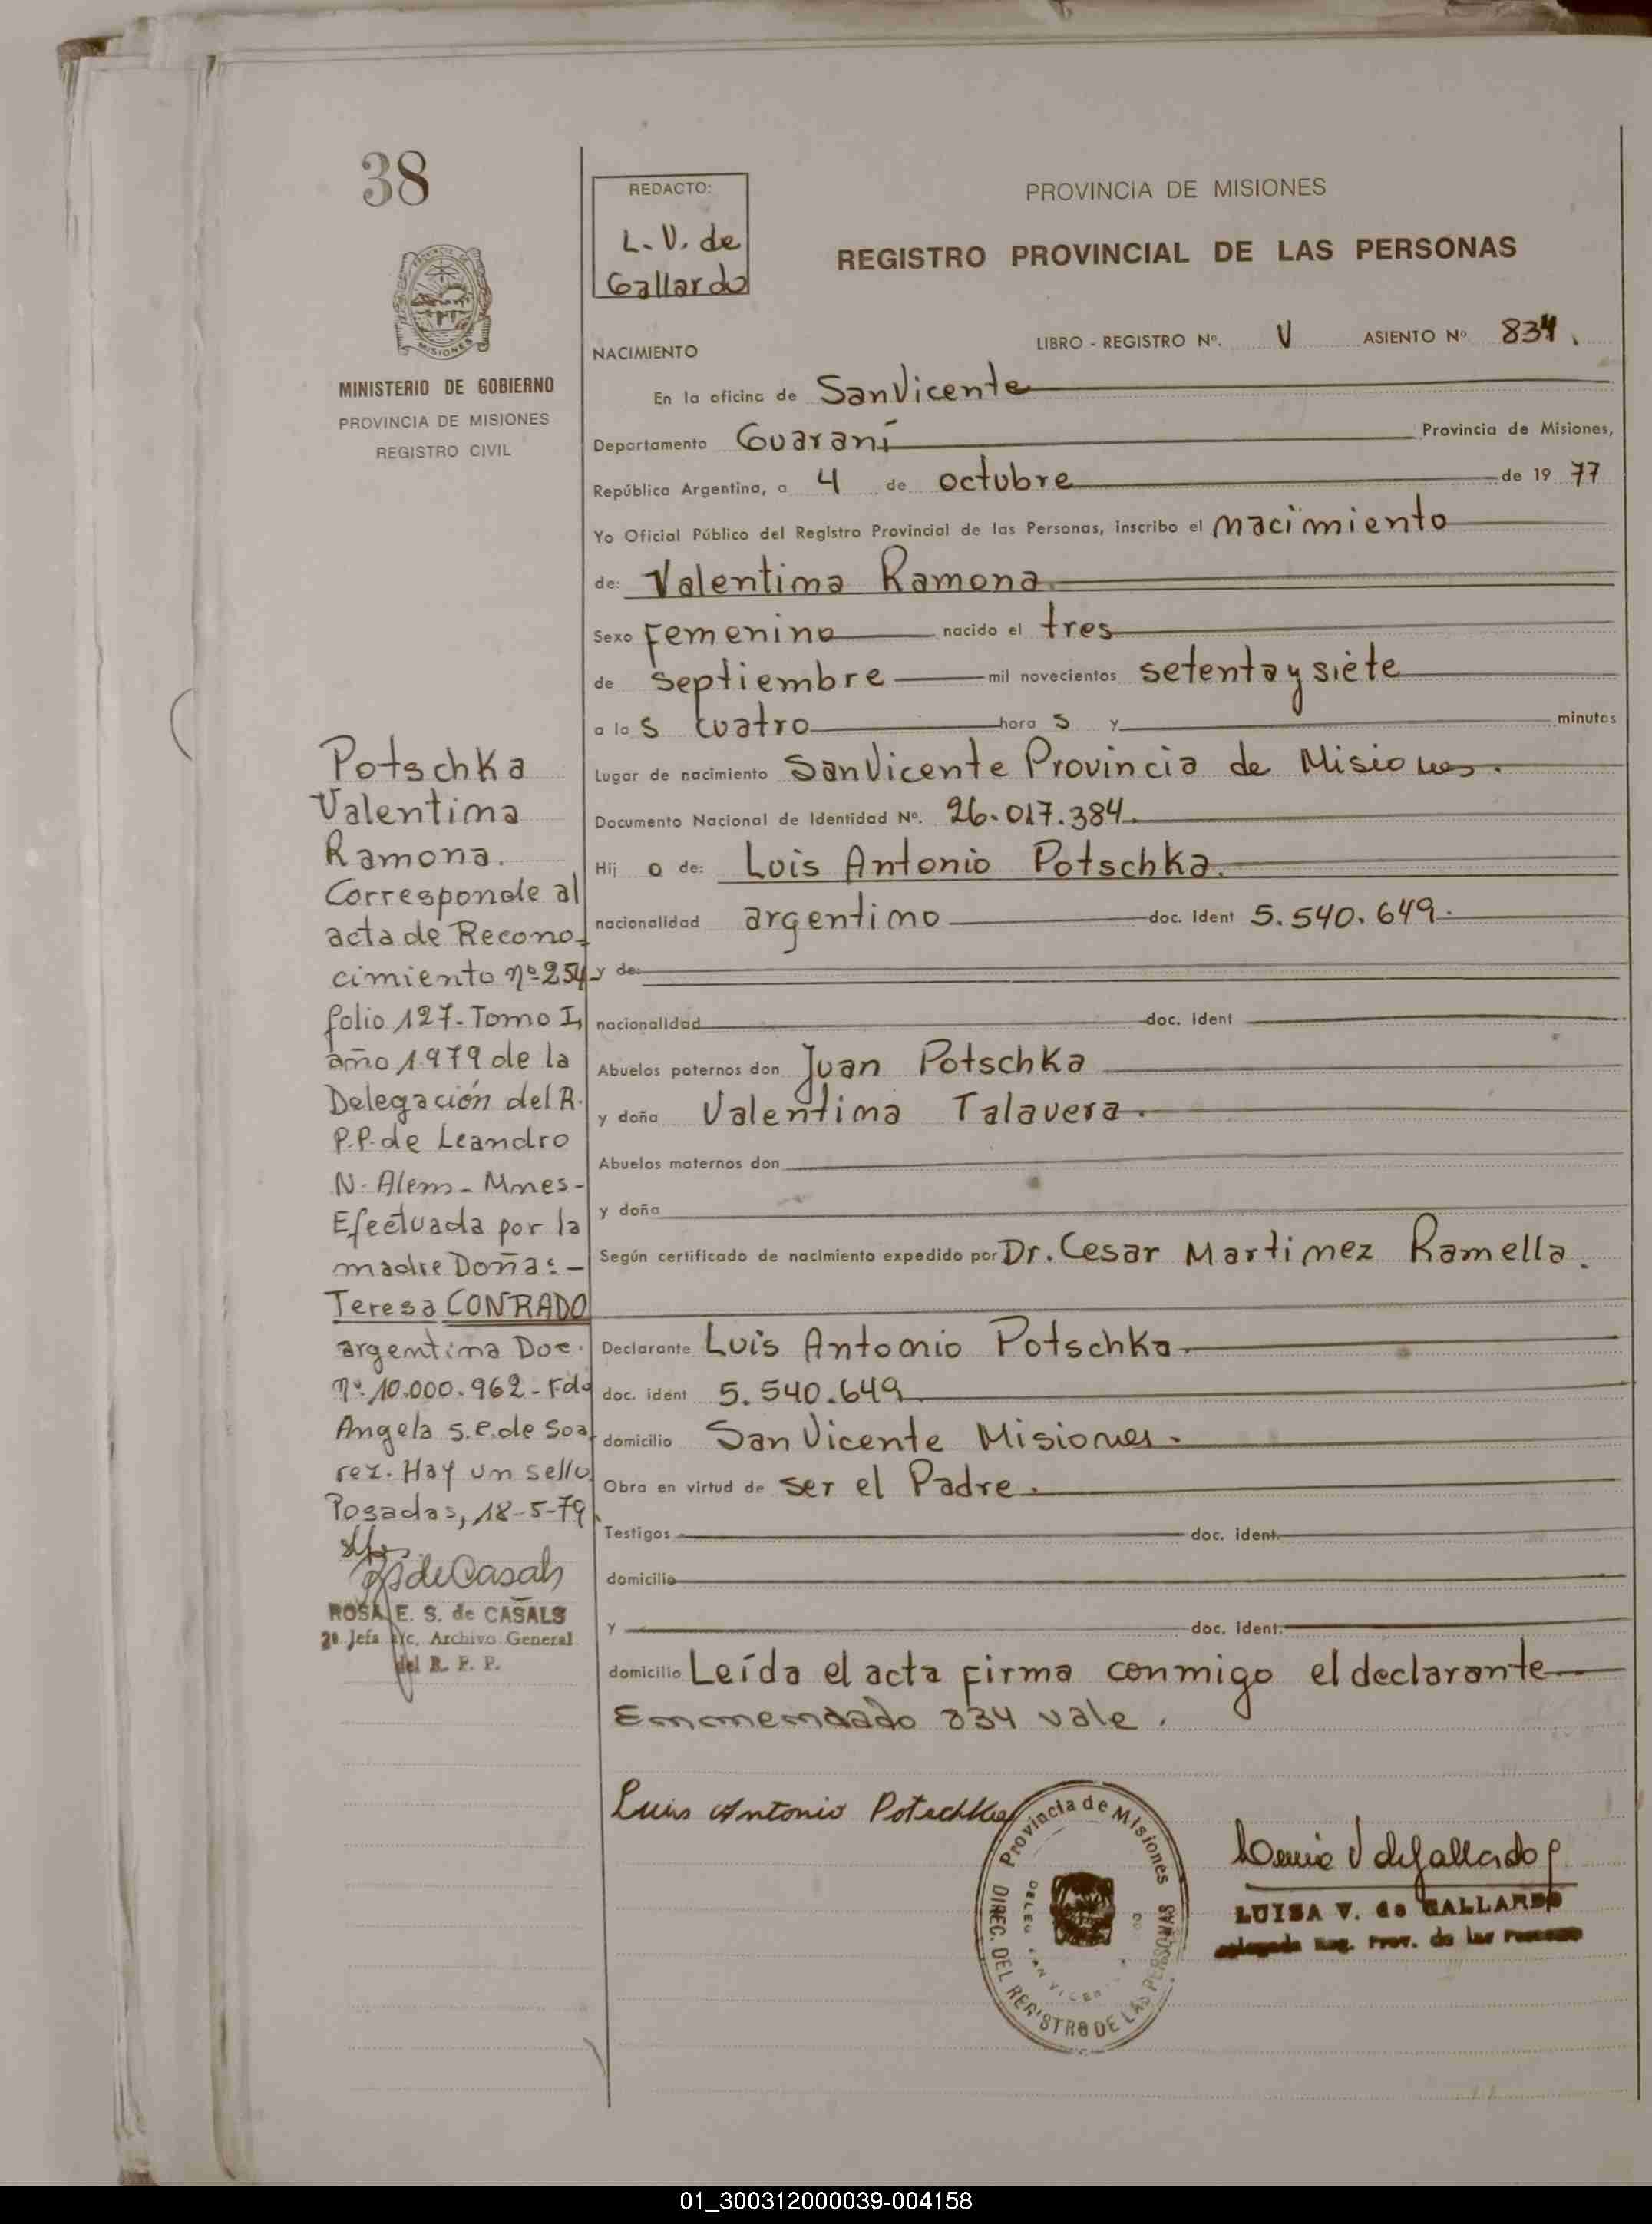 38
MINISTERIO DE GOBIERNO
PROVINCIA DE MISIONES
REGISTRO CIVIL
Potschka
Valentina
Ramona.
Corresponde al
acta de Recono-
cimiento nº 254-
folio 127-Tomo I,
año 1.979 de la
Delegación del R.
P.P. de Leandro
N. Alem - Mnes-
Efectuada por la
madre Doña: -
Teresa CONRADO
argentina Doc.
nº 10.000.962 - Fdo
Angela S.E. de Soa
rez. Hay un sello
Posadas, 18-5-79
ROSA E. S. de CASALS
2º Jefa A/c. Archivo General
del R. P. P.
REDACTO:
L. V. de
Gallardo
PROVINCIA DE MISIONES
REGISTRO PROVINCIAL DE LAS PERSONAS
NACIMIENTO LIBRO - REGISTRO Nº. V ASIENTO Nº 834.
En la oficina de San Vicente
Departamento Guaraní Provincia de Misiones,
República Argentina, a 4 de octubre de 19 77
Yo Oficial Público del Registro Provincial de las Personas, inscribo el nacimiento
de: Valentina Ramona
Sexo Femenino nacido el tres
de septiembre mil novecientos setenta y siete
a las cuatro horas y minutos
Lugar de nacimiento San Vicente Provincia de Misiones.
Documento Nacional de Identidad Nº. 26.017.384.
Hijo de: Luis Antonio Potschka.
nacionalidad argentino doc. ident 5.540.649.
y de:
nacionalidad doc. ident
Abuelos paternos don Juan Potschka
y doña Valentina Talavera.
Abuelos maternos don
y doña
Según certificado de nacimiento expedido por Dr. Cesar Martinez Ramella.
Declarante Luis Antonio Potschka.
doc. ident 5.540.649
domicilio San Vicente Misiones.
Obra en virtud de ser el Padre.
Testigos doc. ident.
domicilio
y doc. ident.
domicilio Leída el acta firma conmigo el declarante
Enmendado 834 vale.
Luis Antonio Potschka
Provincia de Misiones
DIREC. DEL REGISTRO DE LAS PERSONAS
LUISA V. de GALLARDO
Reg. Prov. de las Personas
01_300312000039-004158